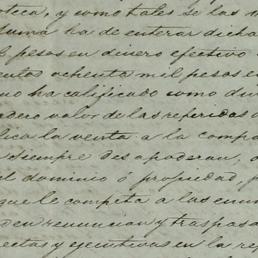 oteca, y como tales se las
suma ha de enterar dicha
pesos en dinero efectivo
entos ochenta mil pesos en
ha calificado como
dero valor de las referidas
lica la venta a la compa
siempre desapoderan,
el dominio ó propiedad,
que le competa a las
den renuncian y traspasa
rectas y ejecutivas en la